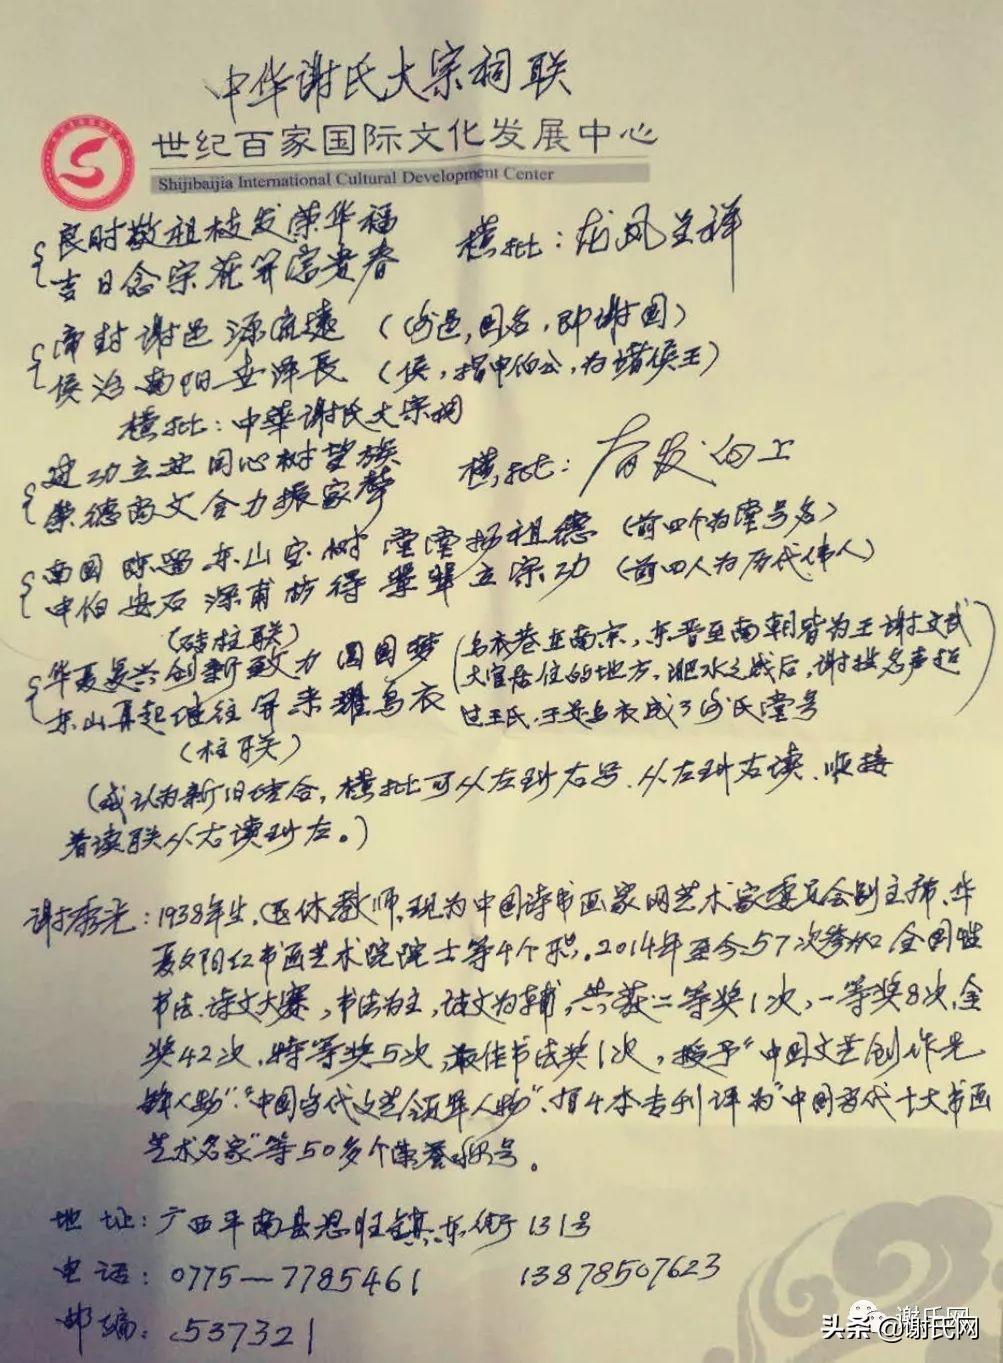 中华谢氏大宗祠联
世纪百家国际文化发展中心
Shijibaijia International Cultural Development Center
良时敬祖枝发荣华福
横批：龙凤呈祥
吉日念宗花开富贵春
帝封谢邑源流远（谢邑，国名，即谢国）
侯治南阳世泽长（侯，指申伯公，为诸侯王）
横批：中华谢氏大宗祠
建功立业同心树望族
横批：奋发向上
崇德尚文合力振家声
南国陈留东山宝树堂堂扬祖德（前四个为堂号名）
申伯安石深甫枋得辈辈立宗功（前四人为历代伟人）
（砖柱联）
华夏复兴创新致力圆国梦
东山再起继往开来耀乌衣
（乌衣巷在南京，东晋至南朝皆为王谢文武
大官居住的地方，淝水之战后，谢族名声超
过王氏，于是乌衣成了谢氏堂号）
（柱联）
（我认为新旧结合，横批可从左到右写、从左到右读、顺接
着读联从右读到左。）
谢秀光：1938年生，退休教师，现为中国诗书画家网艺术家委员会副主席、华
夏夕阳红书画艺术院院士等4个职。2014年至今57次参加全国性
书法、诗文大赛，书法为主，诗文为辅，共获二等奖1次，一等奖8次，金
奖42次，特等奖5次，最佳书法奖1次，授予“中国文艺创作先
锋人物”、“中国当代文艺领军人物”、有4本专刊评为“中国当代十大书画
艺术名家”等50多个荣誉称号。
地址：广西平南县思旺镇东街131号
电话：0775—7785461 13878507623
邮编：537321
谢氏网
头条@谢氏网